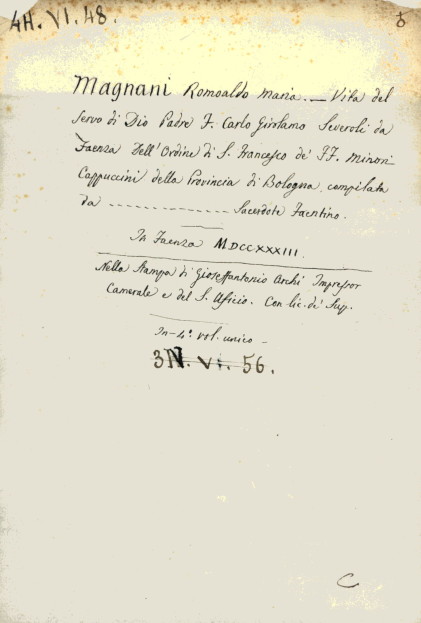 4H. VI. 48.
Magnani Romoaldo Maria. — Vita del
Servo di Dio Padre F. Carlo Girolamo Severoli da
Faenza Dell'Ordine di S. Francesco de' FF. Minori
Cappuccini della Provincia di Bologna, compilata
da -------------- Sacerdote Faentino.
In Faenza MDCCXXXIII.
Nella Stampa di Gioseffantonio Archi Impressor
Camerale e del S. Uficio. Con lic. de' Sup.
In-4° vol. unico -
3N. VI. 56.
C